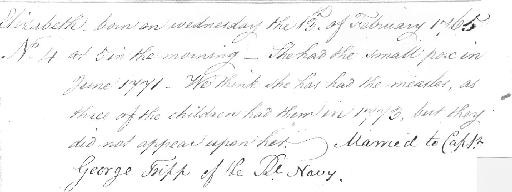 Elizabeth, born on wednesday the 13th. of February 1765
No. 4 at 5 in the morning — She had the small pox in
June 1771 - We think she has had the measles, as
three of the children had them in 1773, but they
did not appear upon her. Married to Captn
George Tripp of the Rl. Navy.